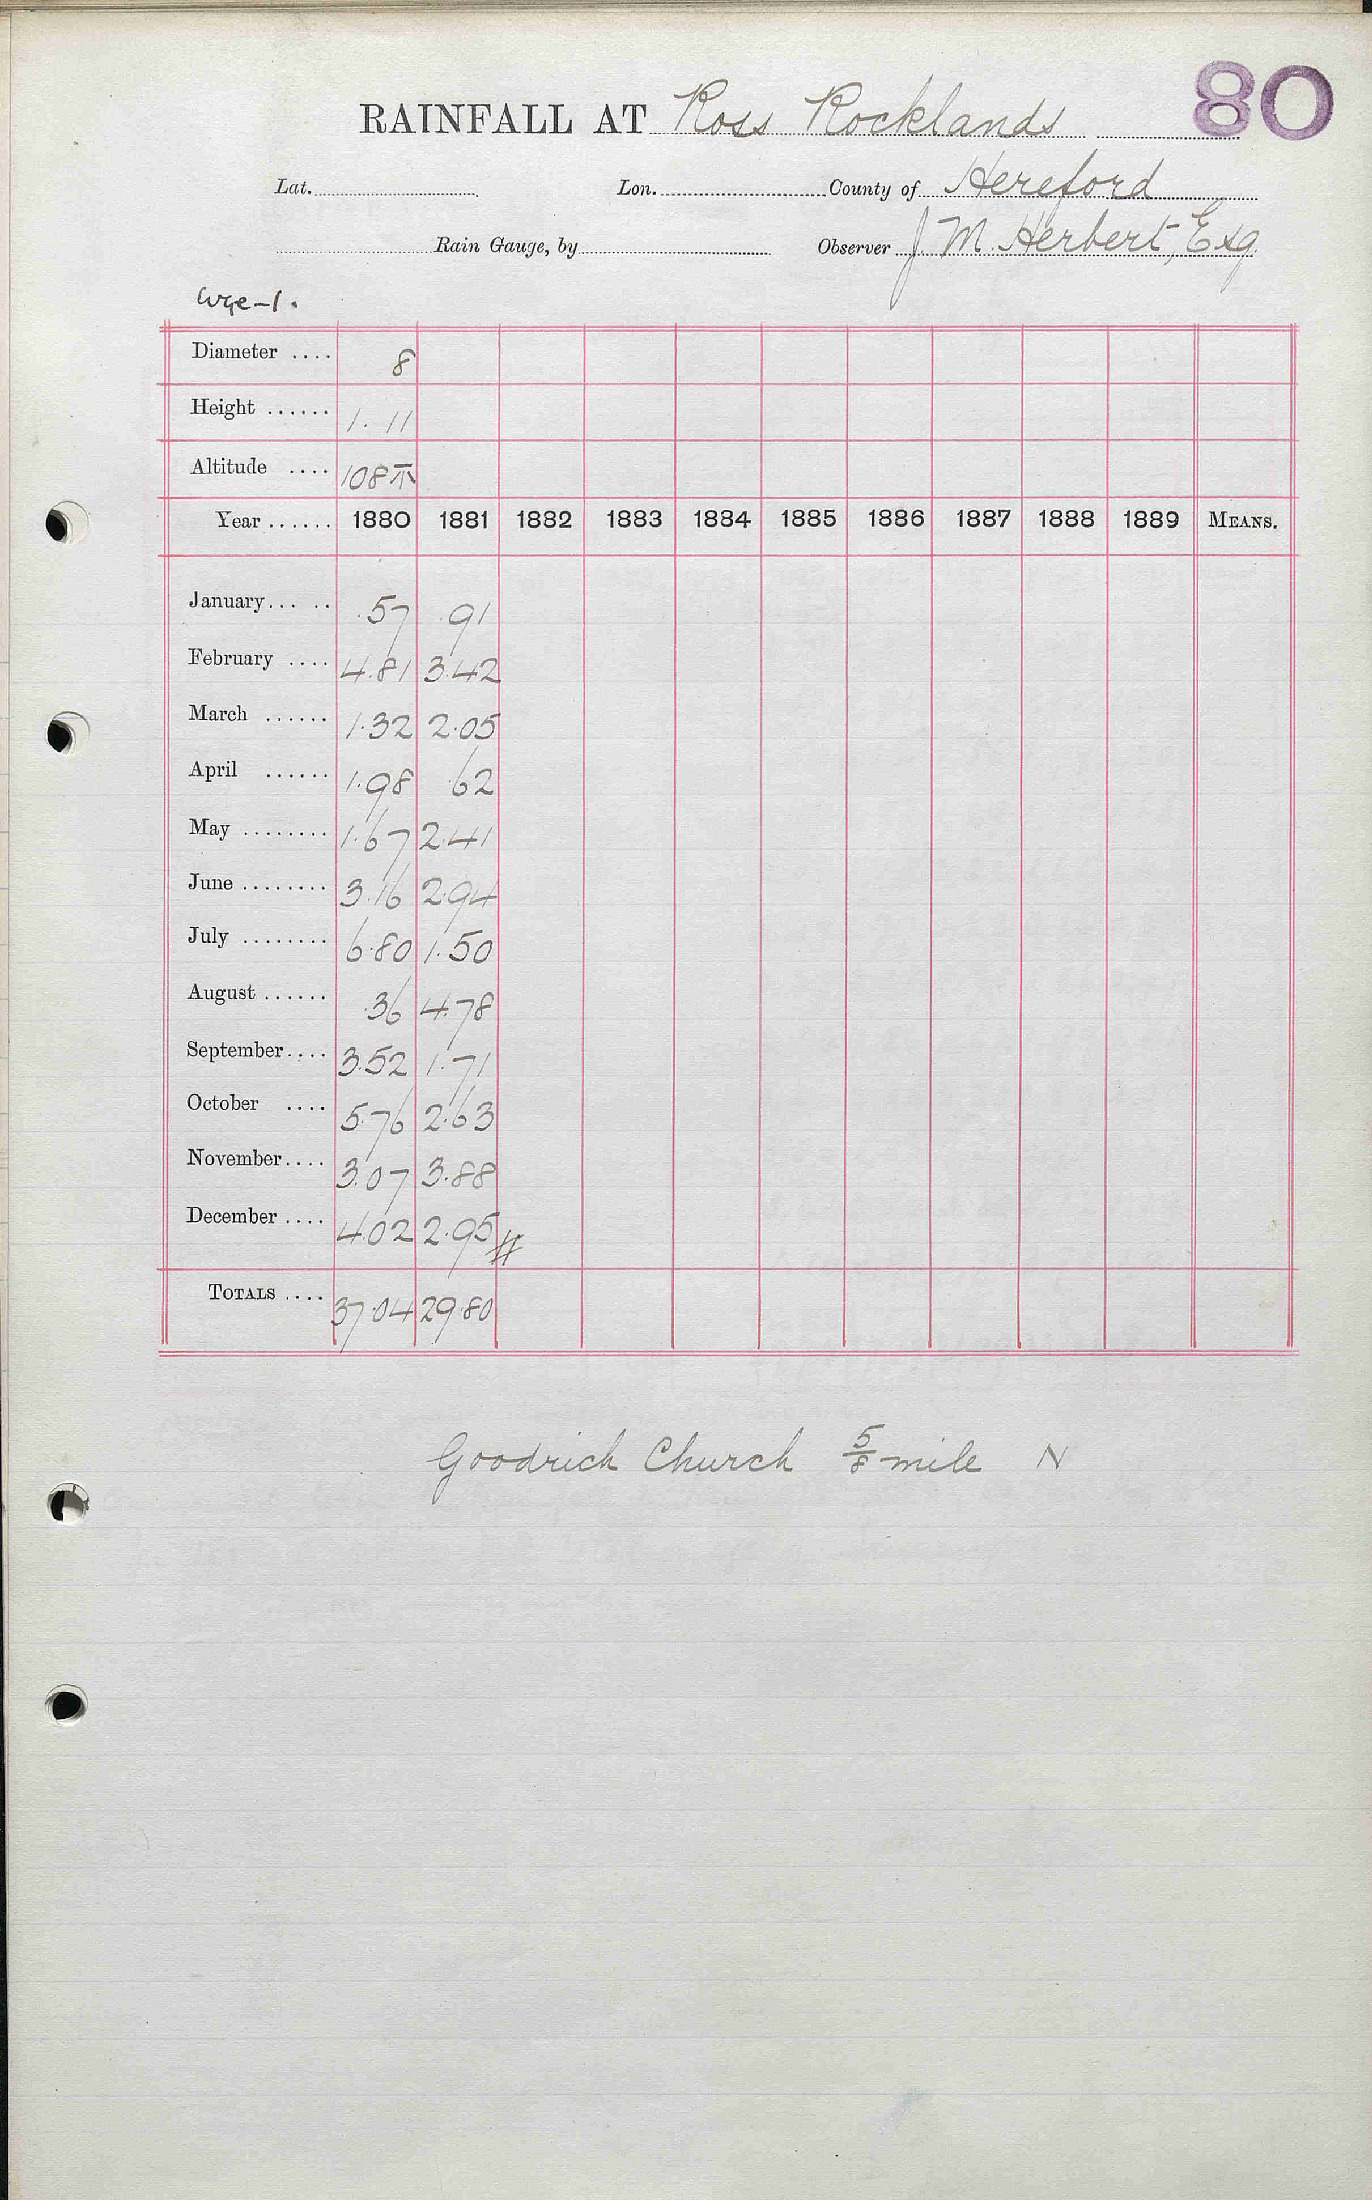 80
RAINFALL AT Ross Rocklands
Lat. Lon. County of Hereford
Rain Gauge, by Observer J. M. Herbert, Esq.
Wye-1.
Diameter .... 8
Height ...... 1. 11
Altitude .... 108
Year ...... 1880 1881 1882 1883 1884 1885 1886 1887 1888 1889 MEANS.
January... .. .57 .91
February .... 4.81 3.42
March ...... 1.32 2.05
April ...... 1.98 .62
May ........ 1.67 2.41
June ........ 3.16 2.94
July ........ 6.80 1.50
August ...... .36 4.78
September.... 3.52 1.71
October .... 5.76 2.63
November.... 3.07 3.88
December .... 4.02 2.95 #
TOTALS .... 37.04 29.80
Goodrich Church 5/8 mile N